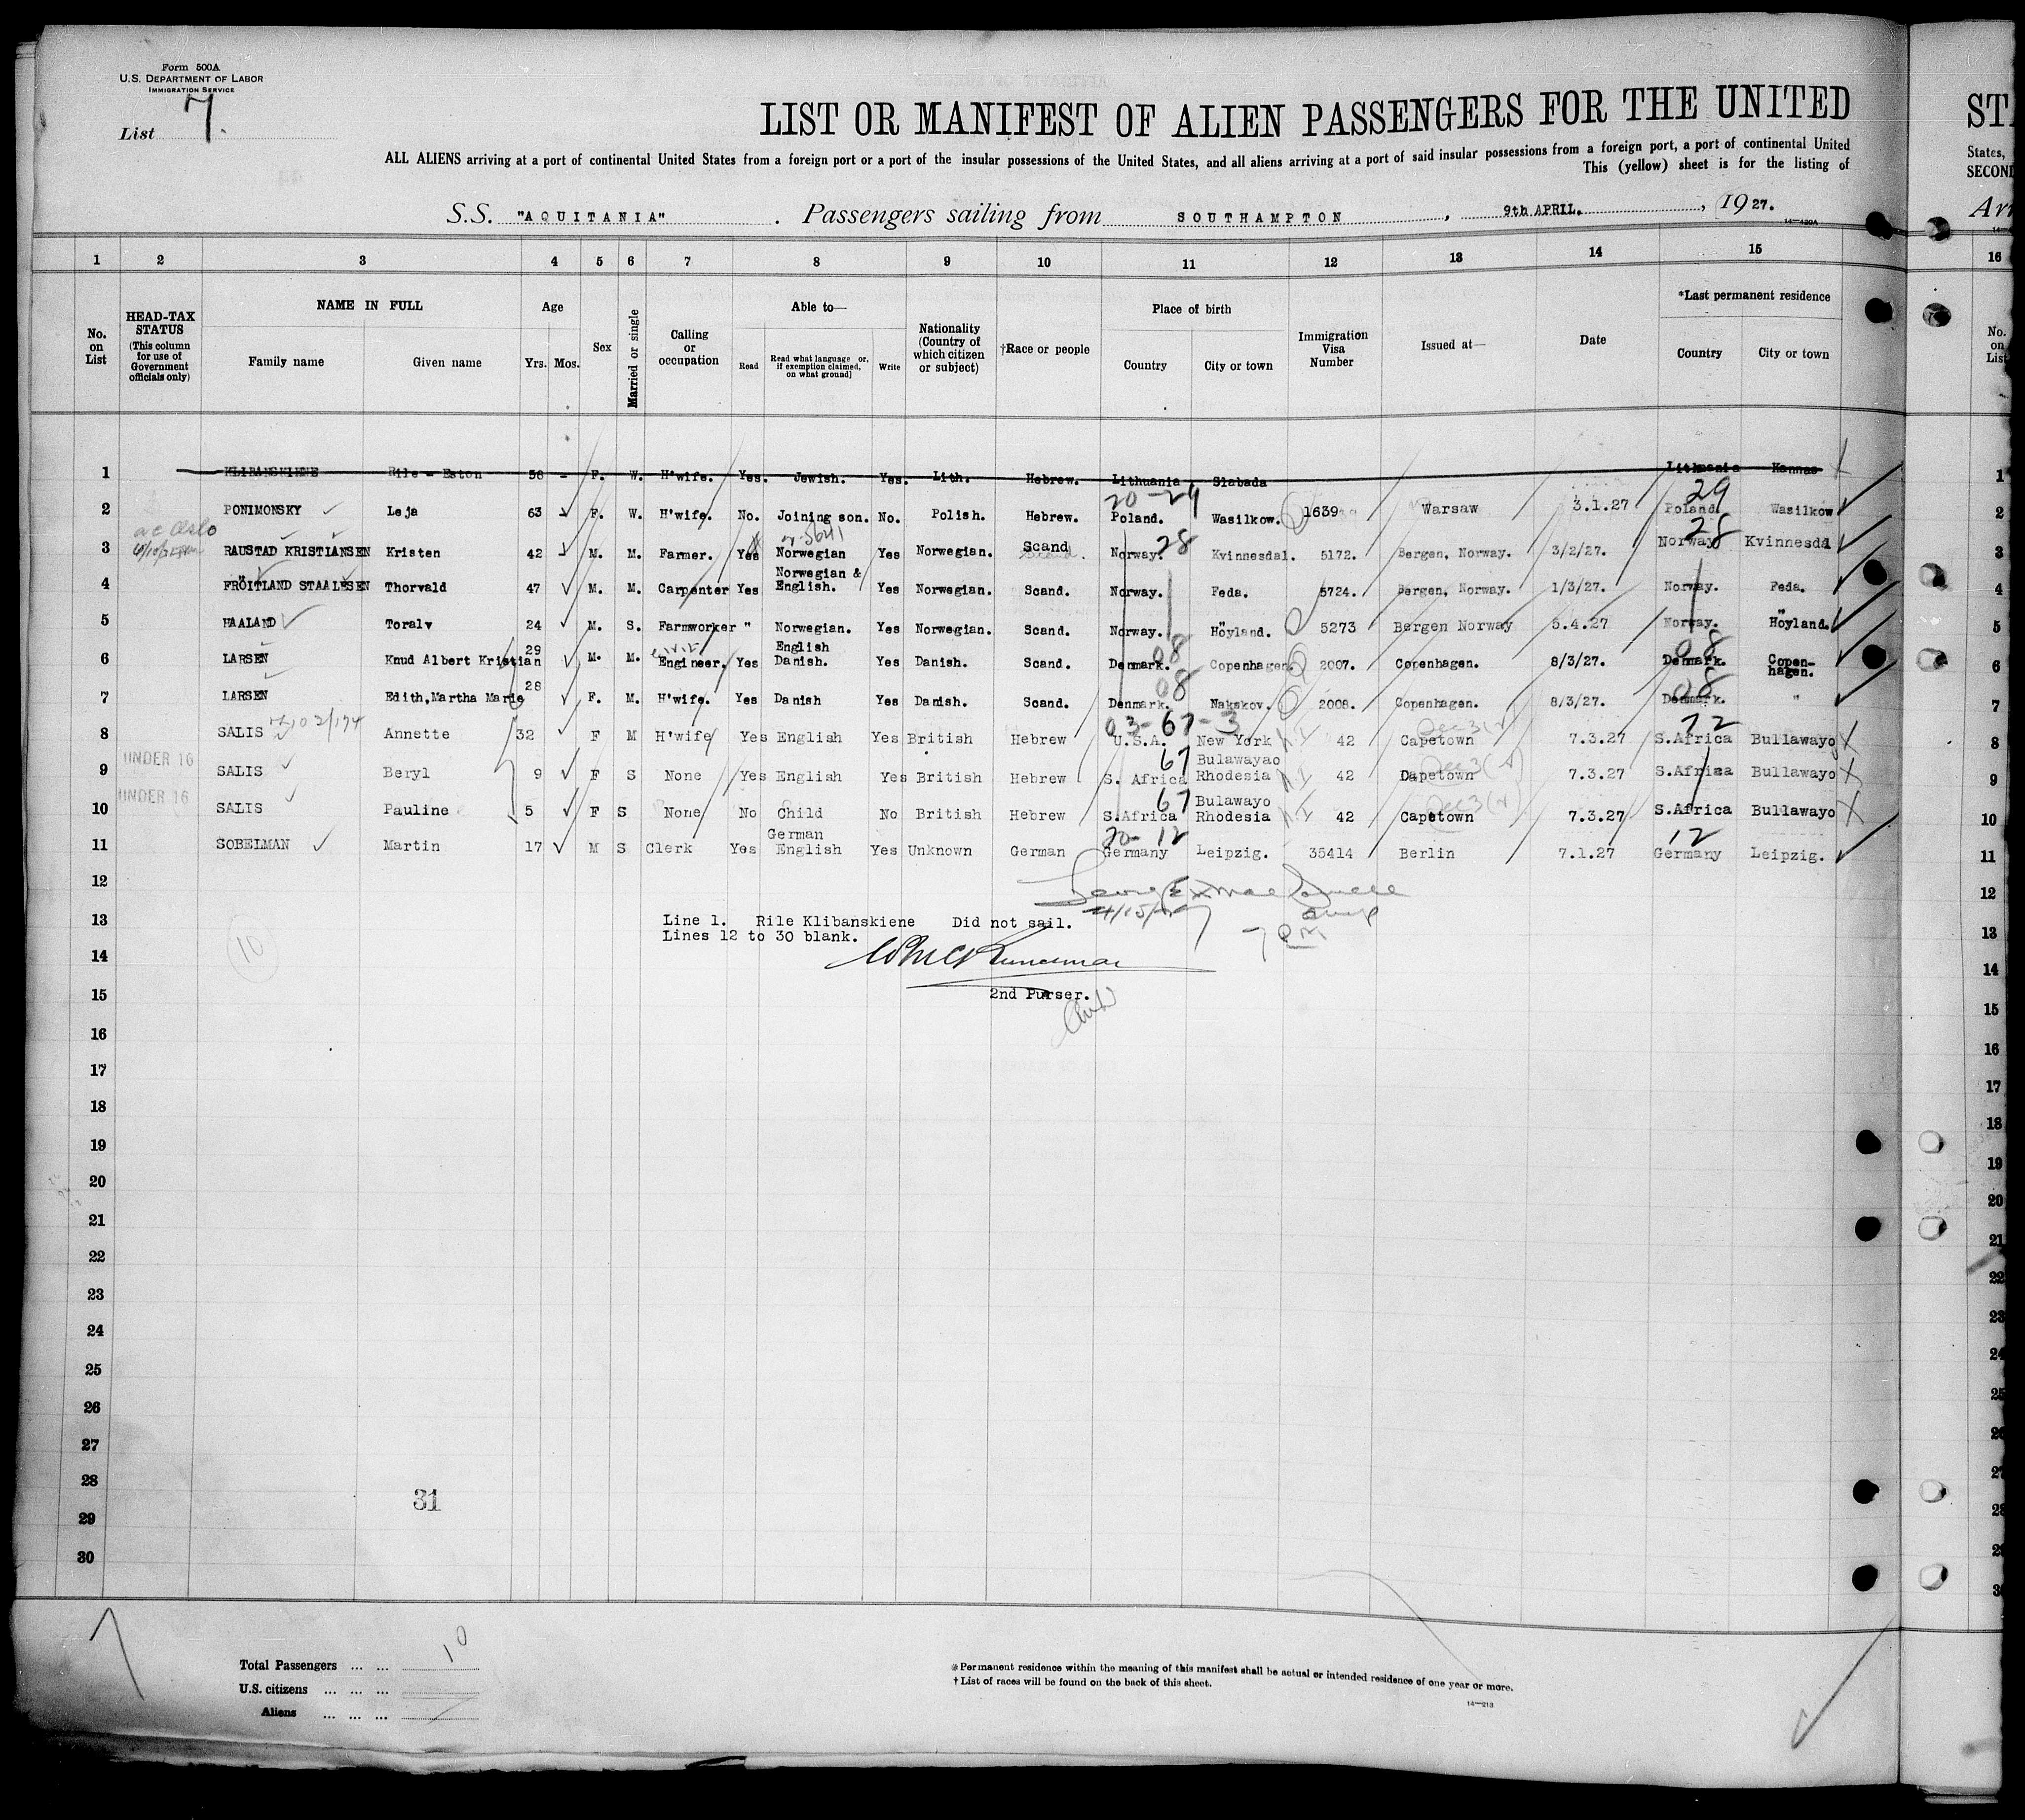 Form 500A
U.S. DEPARTMENT OF LABOR
IMMIGRATION SERVICE
List 7.
LIST OR MANIFEST OF ALIEN PASSENGERS FOR THE UNITED
ALL ALIENS arriving at a port of continental United States from a foreign port or a port of the insular possessions of the United States, and all aliens arriving at a port of said insular possessions from a foreign port, a port of continental United
This (yellow) sheet is for the listing of
S.S. "AQUITANIA" . Passengers sailing from SOUTHAMPTON , 9th APRIL. , 1927.
14—420A
ST
States,
SECOND
Arr
1 2 3 4 5 6 7 8 9 10 11 12 13 14 15 16
No. on List
HEAD-TAX STATUS (This column for use of Government officials only)
NAME IN FULL Family name Given name
Age Yrs. Mos.
Sex
Married or single
Calling or occupation
Able to— Read Read what language or, if exemption claimed, on what ground] Write
Nationality (Country of which citizen or subject)
†Race or people
Place of birth Country City or town
Immigration Visa Number
Issued at—
Date
*Last permanent residence Country City or town
No. on List
1 KLIBANSKIENE Rile - Eston 58 - F. W. H'wife. Yes. Jewish. Yes. Lith. Hebrew. Lithuania Slabada Lithuania Kannas 1
20-29 29
2 PONIMONSKY Leja 63 F. W. H'wife. No. Joining son. No. Polish. Hebrew. Poland. Wasilkow. 1639 Warsaw 3.1.27 Poland Wasilkow 2
28 28
3 RAUSTAD KRISTIANSEN Kristen 42 M. M. Farmer. Yes Norwegian Yes Norwegian. Scand Norway. Kvinnesdal. 5172. Bergen, Norway. 3/2/27. Norway Kvinnesdl 3
4 FRÖITLAND STAALESEN Thorvald 47 M. M. Carpenter Yes Norwegian & English. Yes Norwegian. Scand. Norway. Feda. 5724. Bergen, Norway. 1/3/27. Norway. Feda. 4
5 HAALAND Toralv 24 M. S. Farmworker " Norwegian. Yes Norwegian. Scand. Norway. Höyland. 5273 Bergen Norway 5.4.27 Norway. Höyland. 5
08 08
6 LARSEN Knud Albert Kristian 29 M. M. civil Engineer. Yes English Danish. Yes Danish. Scand. Denmark. Copenhagen 2007. Copenhagen. 8/3/27. Denmark. Copen-hagen. 6
08 08
7 LARSEN Edith,Martha Marie 28 F. M. H'wife. Yes Danish Yes Danish. Scand. Denmark. Nakskov. 2008. Copenhagen. 8/3/27. Denmark. " 7
03-67-3 72
8 SALIS Annette 32 F M H'wife Yes English Yes British Hebrew U.S.A. New York 42 Capetown 7.3.27 S.Africa Bullawayo 8
UNDER 16 67
9 SALIS Beryl 9 F S None Yes English Yes British Hebrew S. Africa Bulawayao Rhodesia 42 Dapetown 7.3.27 S.Africa Bullawayo 9
UNDER 16 67
10 SALIS Pauline 5 F S None No Child No British Hebrew S.Africa Bulawayo Rhodesia 42 Capetown 7.3.27 S.Africa Bullawayo 10
20-12 12
11 SOBELMAN Martin 17 M S Clerk Yes German English Yes Unknown German Germany Leipzig. 35414 Berlin 7.1.27 Germany Leipzig. 11
12 12
13 Line 1. Rile Klibanskiene Did not sail. 13
Lines 12 to 30 blank. 7 PM
14 10 14
15 2nd Purser. 15
16 16
17 17
18 18
19 19
20 20
21 21
22 22
23 23
24 24
25 25
26 26
27 27
28 31 28
29 29
30 30
Total Passengers ... ... 10
U.S. citizens ... ... ...
Aliens ... ... ...
*Permanent residence within the meaning of this manifest shall be actual or intended residence of one year or more.
†List of races will be found on the back of this sheet.
14—213